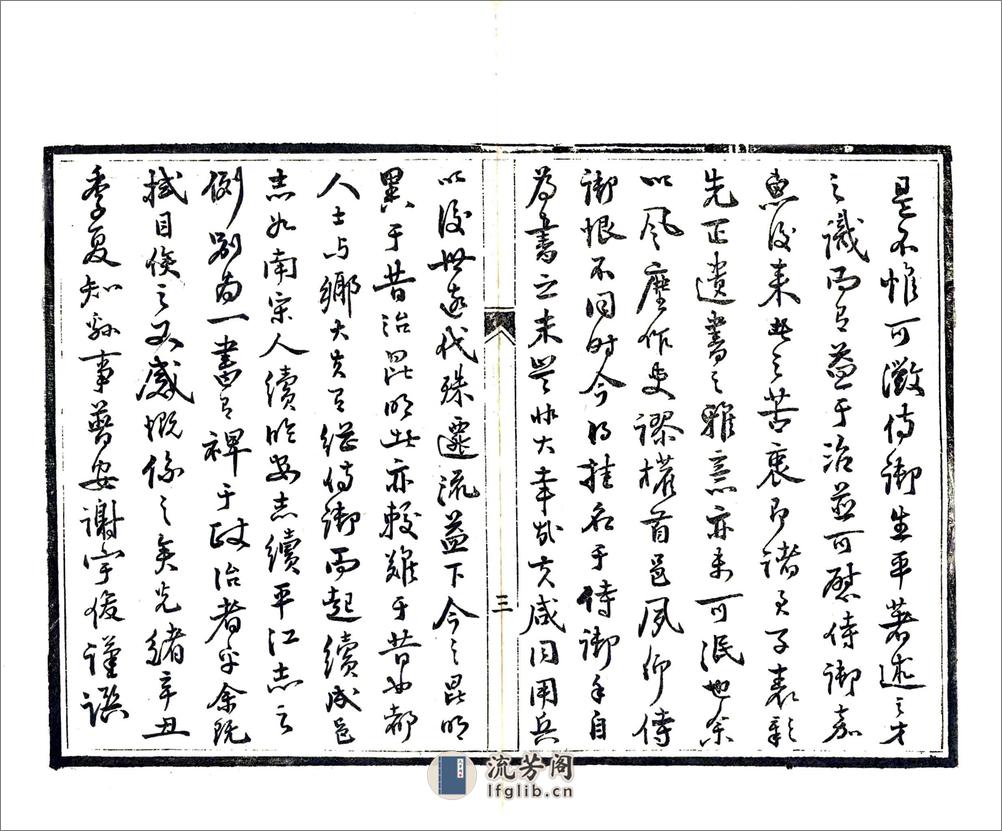 是不惟可徵侍御生平著述之才
之識而有益于治并可慰侍御嘉
惠後来迭之苦衷即諸君子表彰
先正遺書之雅意亦未可泯也余
以風塵作吏謬權首邑夙仰侍
御恨不同時今得挂名于侍御手自
為書之末豈非大幸哉夫咸同用兵
以後世逺代殊遷流益下今之昆明
異于昔治昆明此亦較難于昔如都
人士与鄉大夫有继侍御而起續成邑
志如南宋人續臨安志續平江志之
例别為一書有裨于政治者乎余既
拭目俟之又感慨係之矣光緒辛丑
季夏知縣事普安謝宇俊謹識
三
流芳阁
lfglib.cn